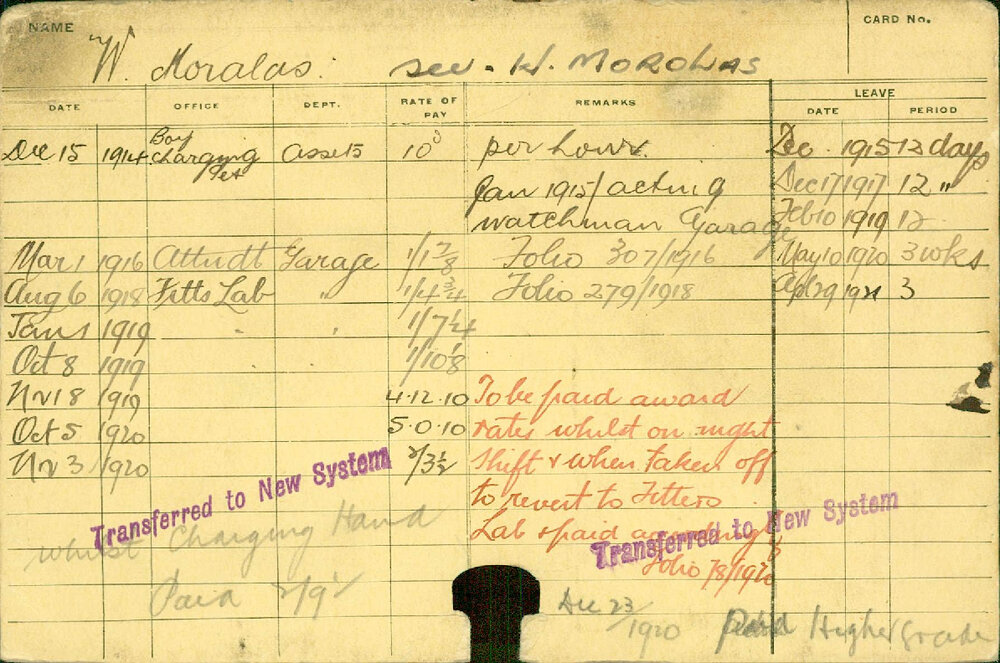 NAME
CARD No.
W. Moralas. see. H. MOROLAS
DATE OFFICE DEPT. RATE OF PAY REMARKS LEAVE
DATE PERIOD
Dec 15 1914 Boy Charging Assets 10d per hour. Dec. 1915 12 days
Jan 1915/acting Dec 17 1917 12 "
watchman Garage Feb 10 1919 12
Mar 1 1916 Attndt Garage 1/1 7/8 Folio 307/1916 May 10 1920 3 wks
Aug 6 1918 Fitts Lab " 1/4 3/4 Folio 279/1918 1921 3
Jan 1 1919 " " 1/7 1/4
Oct 8 1919 1/10
Nv 18 1919 4.12.10 To be paid award
Oct 5 1920 5.0.10 rates whilst on night
Nv 3 1920 2/3½ shift & when taken off
to revert to Fitters
Lab & paid accordingly
Folio 78/1920
Transferred to New System
Transferred to New System
whilst Charging Hand
Paid
Dec 23/1920 Paid Higher Grade